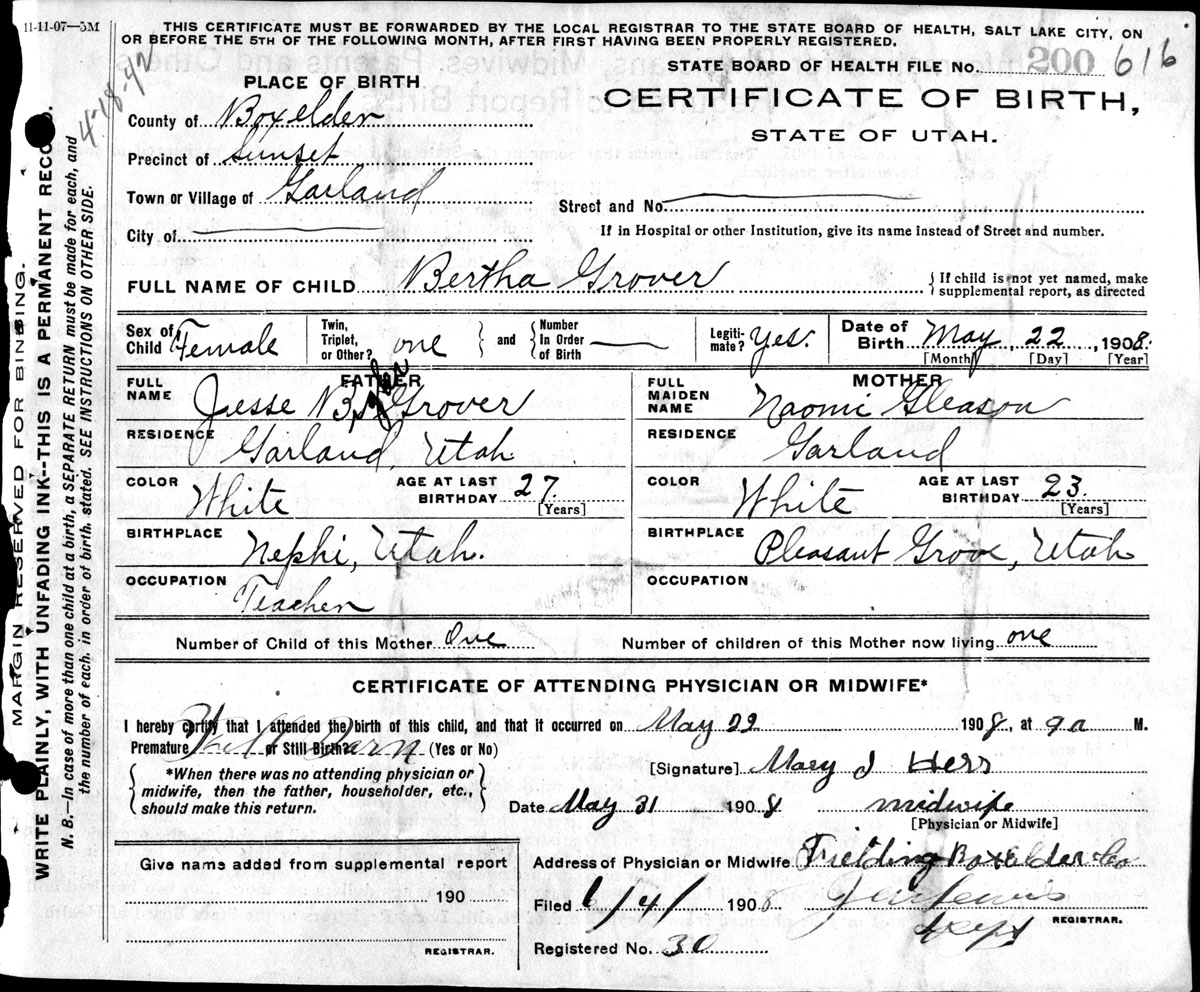 11-11-07—5M
THIS CERTIFICATE MUST BE FORWARDED BY THE LOCAL REGISTRAR TO THE STATE BOARD OF HEALTH, SALT LAKE CITY, ON
OR BEFORE THE 5TH OF THE FOLLOWING MONTH, AFTER FIRST HAVING BEEN PROPERLY REGISTERED.
4-18-42
STATE BOARD OF HEALTH FILE No. 200 616
PLACE OF BIRTH
CERTIFICATE OF BIRTH,
STATE OF UTAH.
County of Boxelder
Precinct of Sunset
Town or Village of Garland
Street and No.
City of
If in Hospital or other Institution, give its name instead of Street and number.
FULL NAME OF CHILD Bertha Grover
{ If child is not yet named, make
supplemental report, as directed
Sex of Child Female
Twin, Triplet, or Other? one } and { Number In Order of Birth
Legitimate? Yes.
Date of Birth May 22, 1908.
[Month] [Day] [Year]
FATHER
FULL NAME Jesse Grover
RESIDENCE Garland, Utah
COLOR White AGE AT LAST BIRTHDAY 27. [Years]
BIRTHPLACE Nephi, Utah.
OCCUPATION Teacher
MOTHER
FULL MAIDEN NAME Naomi Gleason
RESIDENCE Garland
COLOR White AGE AT LAST BIRTHDAY 23. [Years]
BIRTHPLACE Pleasant Grove, Utah
OCCUPATION
Number of Child of this Mother One Number of children of this Mother now living one
CERTIFICATE OF ATTENDING PHYSICIAN OR MIDWIFE*
I hereby certify that I attended the birth of this child, and that it occurred on May 22 1908, at 9 a M.
Premature or Still Birth? (Yes or No)
{ *When there was no attending physician or
midwife, then the father, householder, etc.,
should make this return. }
[Signature] Mary J Hess
Date May 31 1908 midwife
[Physician or Midwife]
Give name added from supplemental report
190
REGISTRAR.
Address of Physician or Midwife Fielding Boxelder Co
Filed 6/4/ 1908
REGISTRAR.
Registered No. 30
MARGIN RESERVED FOR BINDING.
WRITE PLAINLY, WITH UNFADING INK--THIS IS A PERMANENT RECORD.
N. B.—In case of more than one child at a birth, a SEPARATE RETURN must be made for each, and
the number of each, in order of birth, stated. SEE INSTRUCTIONS ON OTHER SIDE.